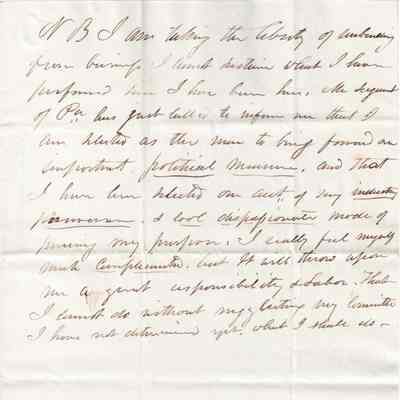 N B I am taking the liberty of
from I cannot destine what I have
performed since I have been here, Mr
of Pa has just called to inform me that I
am selected as the man to bring forward an
important political measure, and that
I have been selected on acct of my industry
perseverance & cool dispassionate mode of
pursuing my purpose, I really feel myself
much complimented, but it will throw upon
me a great responsibility & labor, that
I cannot do without neglecting my Committee
I have not determined yet, what I shall do -